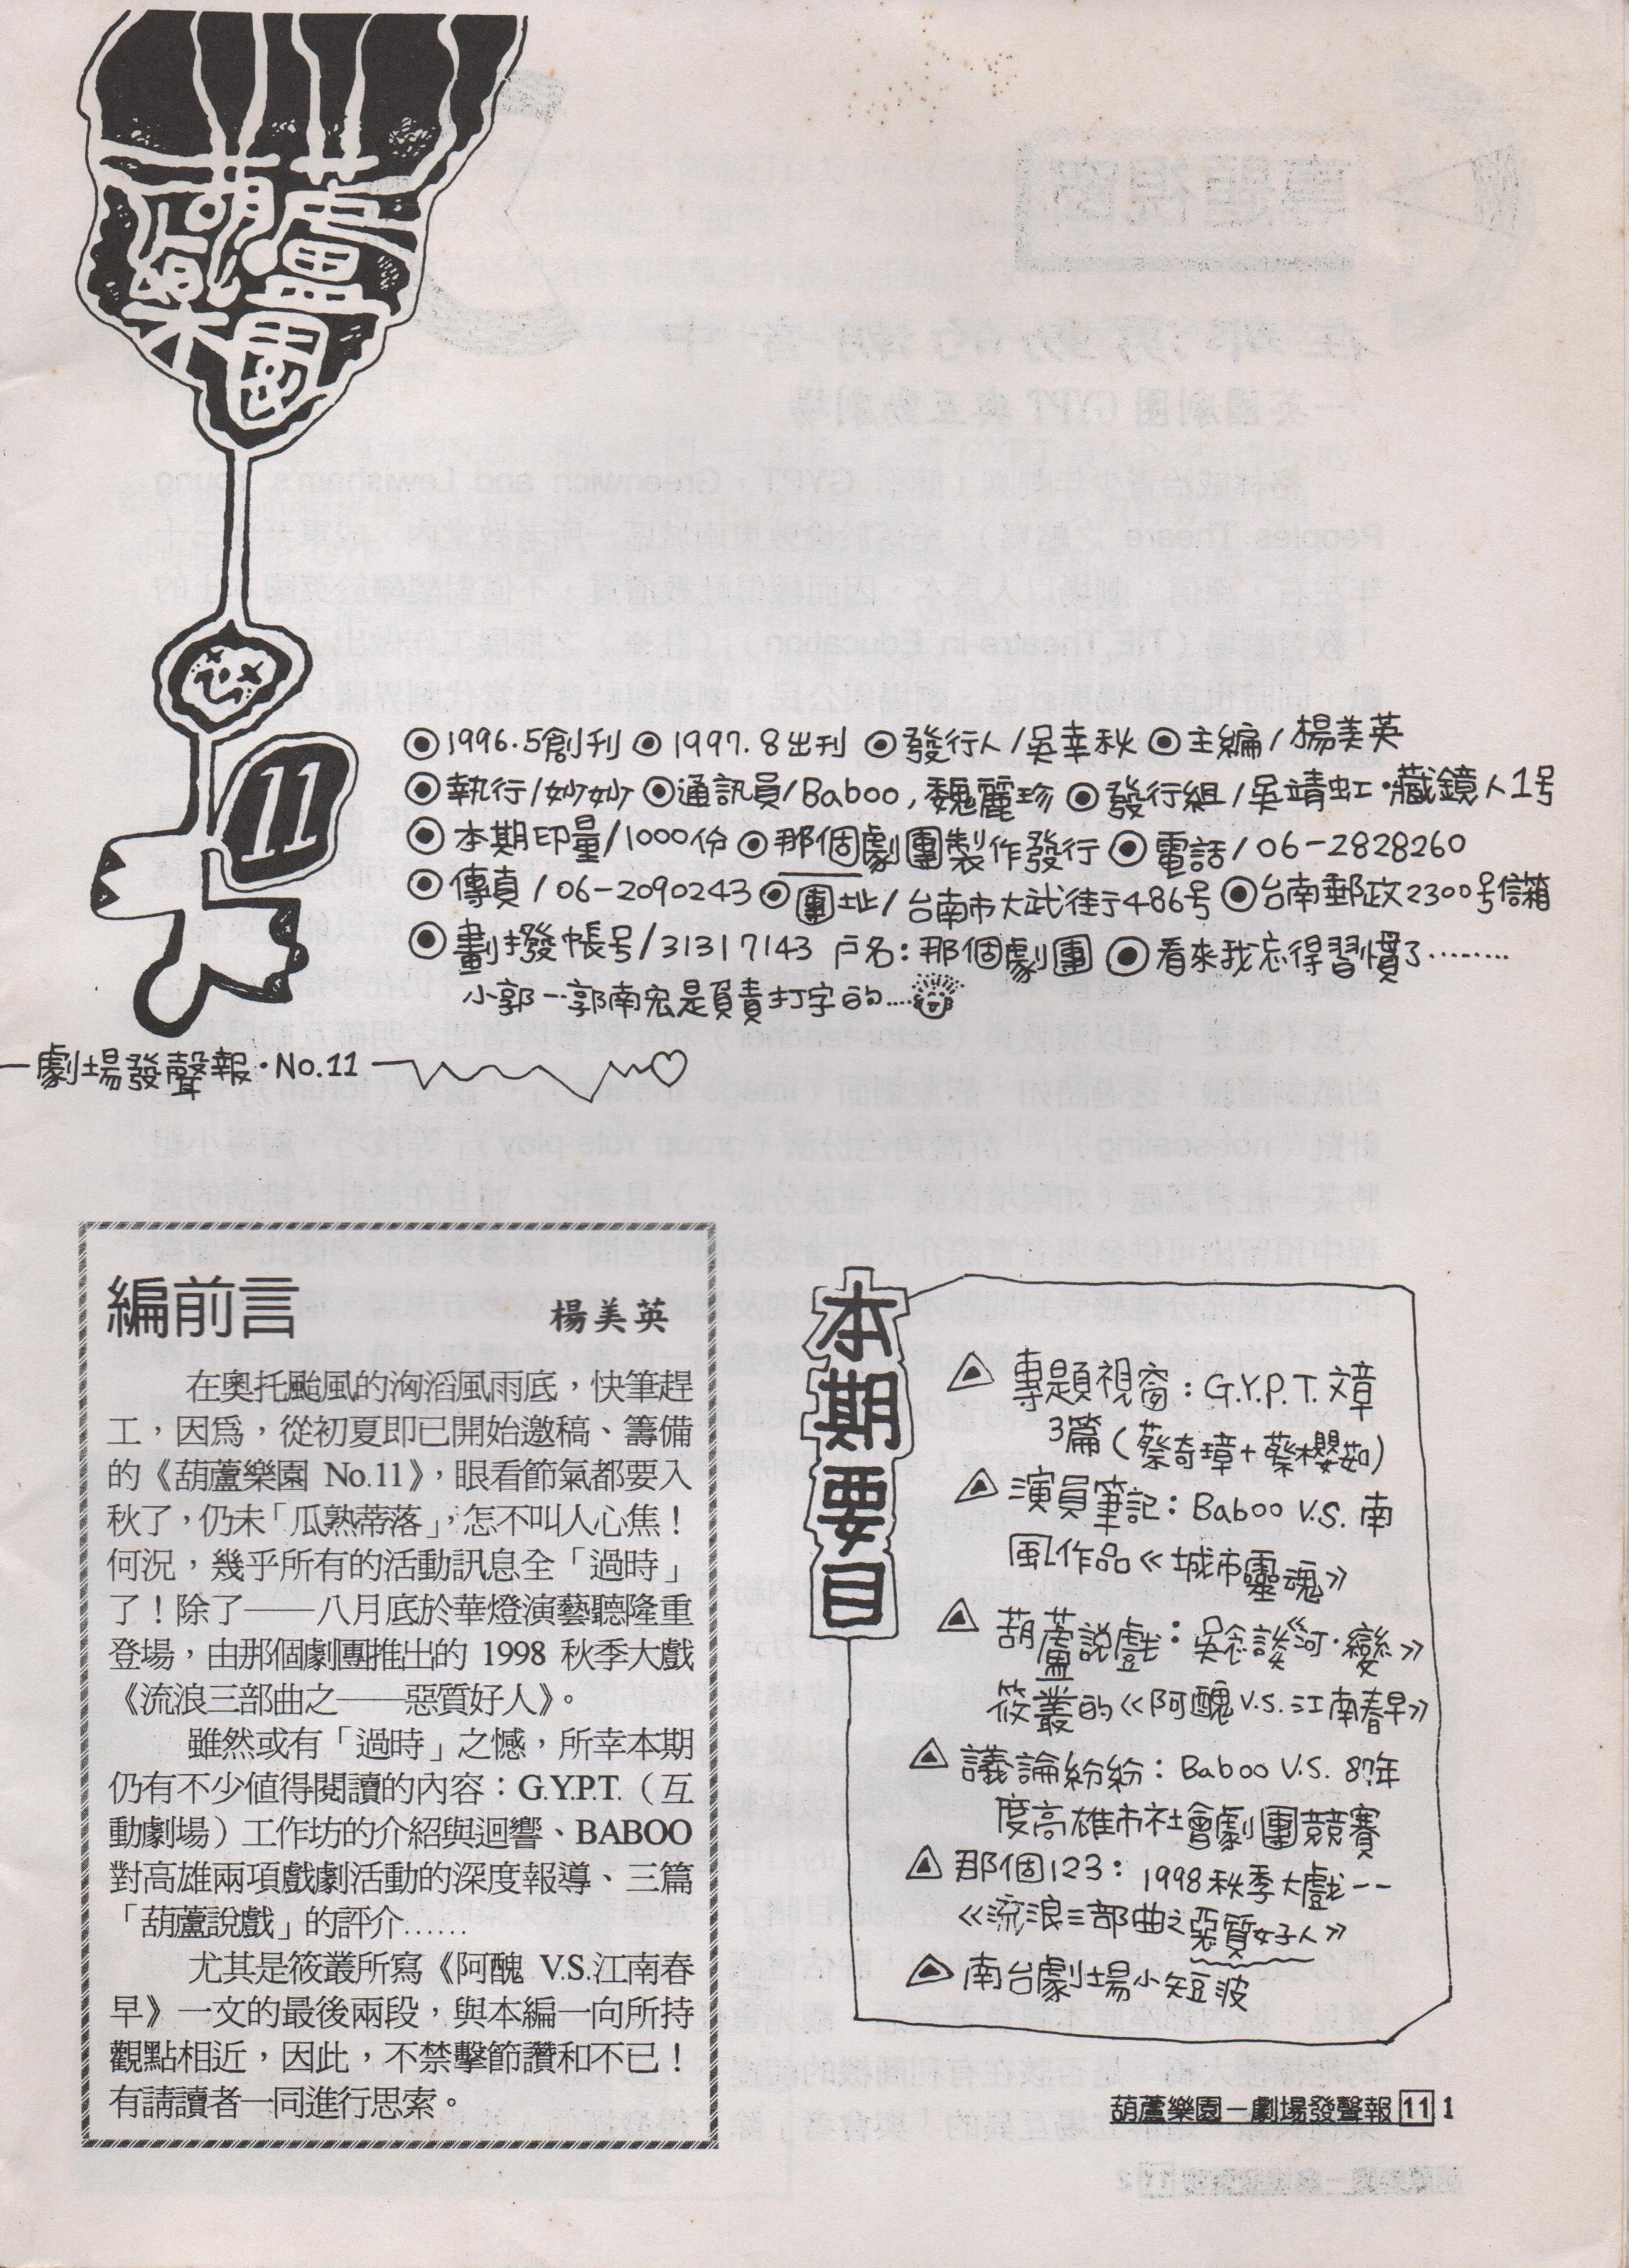 葫蘆樂園
11
◉1996.5創刊 ◉1997.8出刊 ◉發行人/吳幸秋 ◉主編/楊美英
◉執行/妙妙 ◉通訊員/Baboo,魏麗珍 ◉發行組/吳靖虹・藏鏡人1号
◉本期印量/1000份 ◉那個劇團製作發行 ◉電話/06-2828260
◉傳真/06-2090243 ◉團址/台南市大武街486号 ◉台南郵政2300号信箱
◉劃撥帳号/31317143 戶名:那個劇團 ◉看來我忘得習慣了………
小郭--郭南宏是負責打字的....
一劇場發聲報・No.11
編前言 楊美英
在奧托颱風的洶滔風雨底，快筆趕
工，因為，從初夏即已開始邀稿、籌備
的《葫蘆樂園 No.11》，眼看節氣都要入
秋了，仍未「瓜熟蒂落」，怎不叫人心焦！
何況，幾乎所有的活動訊息全「過時」
了！除了——八月底於華燈演藝聽隆重
登場，由那個劇團推出的 1998 秋季大戲
《流浪三部曲之——惡質好人》。
雖然或有「過時」之憾，所幸本期
仍有不少值得閱讀的內容：G.Y.P.T.（互
動劇場）工作坊的介紹與迴響、BABOO
對高雄兩項戲劇活動的深度報導、三篇
「葫蘆說戲」的評介……
尤其是筱叢所寫《阿醜 V.S.江南春
早》一文的最後兩段，與本編一向所持
觀點相近，因此，不禁擊節讚和不已！
有請讀者一同進行思索。
本期要目
專題視窗：G.Y.P.T.文章
3篇(蔡奇璋+蔡櫻茹)
演員筆記：Baboo V.S. 南
風作品《城市靈魂》
葫蘆說戲：吳念談《河・變》
筱叢的《阿醜V.S.江南春早》
議論紛紛：Baboo V.S. 87年
度高雄市社會劇團競賽
那個123：1998秋季大戲--
《流浪三部曲之惡質好人》
南台劇場小短波
葫蘆樂園－劇場發聲報 11 1